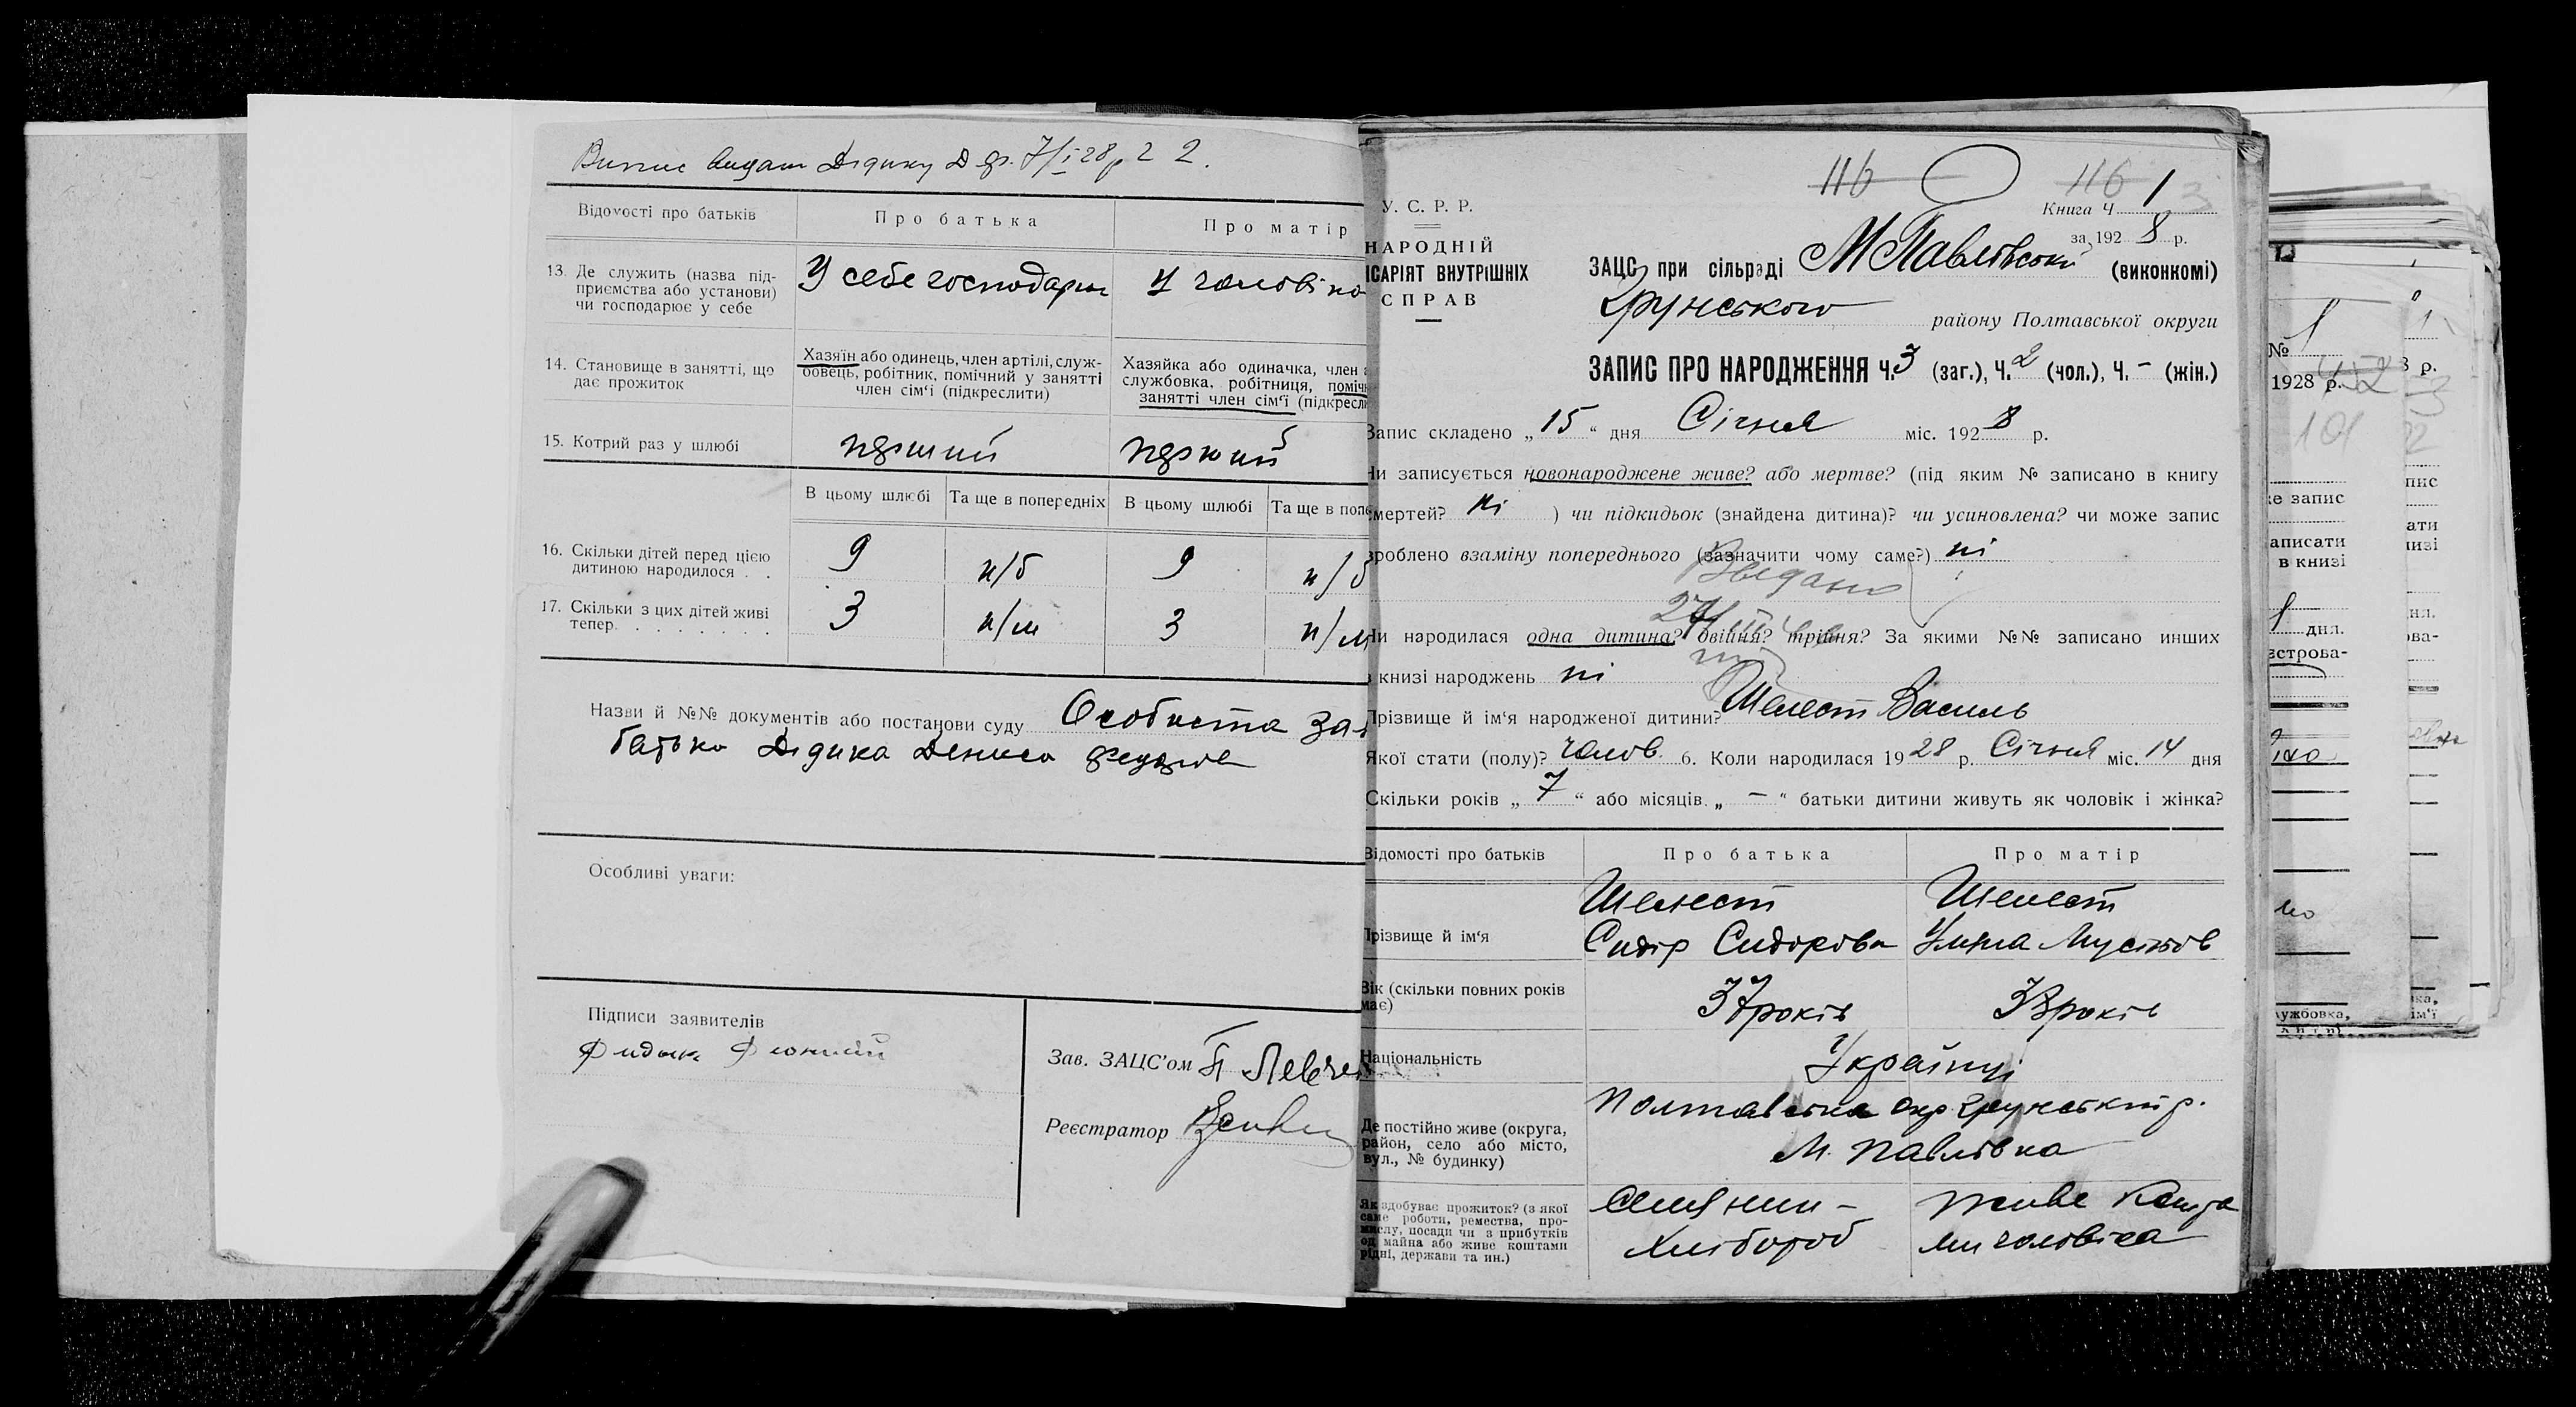 Випис видали Дідику Д 7/I 28 р 2 2.
Відомості про батьків
Про батька
Про матір
13. Де служить (назва під-
приємства або установи)
чи господарює у себе
У себе господарює
У чоловіка
14. Становище в занятті, що
дає прожиток
Хазяїн або одинець, член артілі, служ-
бовець, робітник, помічний у занятті
член сім'ї (підкреслити)
Хазяйка або одиначка, член
службовка, робітниця,
занятті член сім'ї
15. Котрий раз у шлюбі
перший
перший
В цьому шлюбі
Та ще в попередніх
В цьому шлюбі
Та ще в
16. Скільки дітей перед цією
дитиною народилося . .
9
н/б
9
н/б
17. Скільки з цих дітей живі
тепер . . . . . . .
3
н/м
3
н/м
Назви й №№ документів або постанови суду Особиста
батька Дідика Дениса
Особливі уваги:
Підписи заявителів
Зав. ЗАЦС'ом П
Реєстратор
116
116 1 3
У. С. Р. Р.
НАРОДНІЙ
ІСАРІЯТ ВНУТРІШНІХ
СПРАВ
Книга Ч.
за 192 8 р.
ЗАЦС при сільраді М Павлівській (виконкомі)
Грунського району Полтавської округи
ЗАПИС ПРО НАРОДЖЕННЯ Ч. 3 (заг.), Ч. 2 (чол.), Ч. - (жін.)
Запис складено „ 15 “ дня Січня міс. 192 8 р.
Чи записується новонароджене живе? або мертве? (під яким № записано в книгу
смертей? ні ) чи підкидьок (знайдена дитина)? чи усиновлена? чи може запис
зроблено взаміну попереднього (зазначити чому саме?) ні
Видано
Чи народилася одна дитина? двійня? трійня? За якими №№ записано инших
в книзі народжень ні
Прізвище й ім'я народженої дитини? Шелест Василь
Якої стати (полу)? чолов. 6. Коли народилася 19 28 р. Січня міс. 14 дня
Скільки років „ 7 “ або місяців „ - “ батьки дитини живуть як чоловік і жінка?
Відомості про батьків
Про батька
Про матір
Прізвище й ім'я
Шелест
Сидір Сидорова
Шелест
Вік (скільки повних років
має)
37 років
38 років
Національність
Українці
Де постійно живе (округа,
район, село або місто,
вул., № будинку)
Полтавська окр Грунський р.
М. Павлівка
Як здобуває прожиток? (з якої
саме роботи, ремества, про-
мислу, посади чи з прибутків
од майна або живе коштами
рідні, держави та ин.)
Селянин -
хлібороб
живе кошта
ми чоловіка
№ 1
1928 р.
101
е запис
аписати
в книзі
дня.
встрова-
ужбовка,